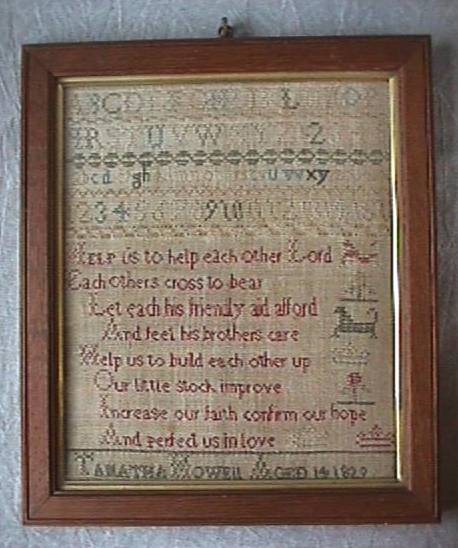 ABCD L
R U V W Z
bcd gh u v w x y
2 3 4 5 6 7 8 9 10 11 12
Help us to help each other Lord
Each others cross to bear
Let each his friendly aid afford
And feel his brothers care
Help us to build each other up
Our little stock improve
Increase our faith confirm our hope
And perfect us in love
Tabatha Howell Aged 14 1829